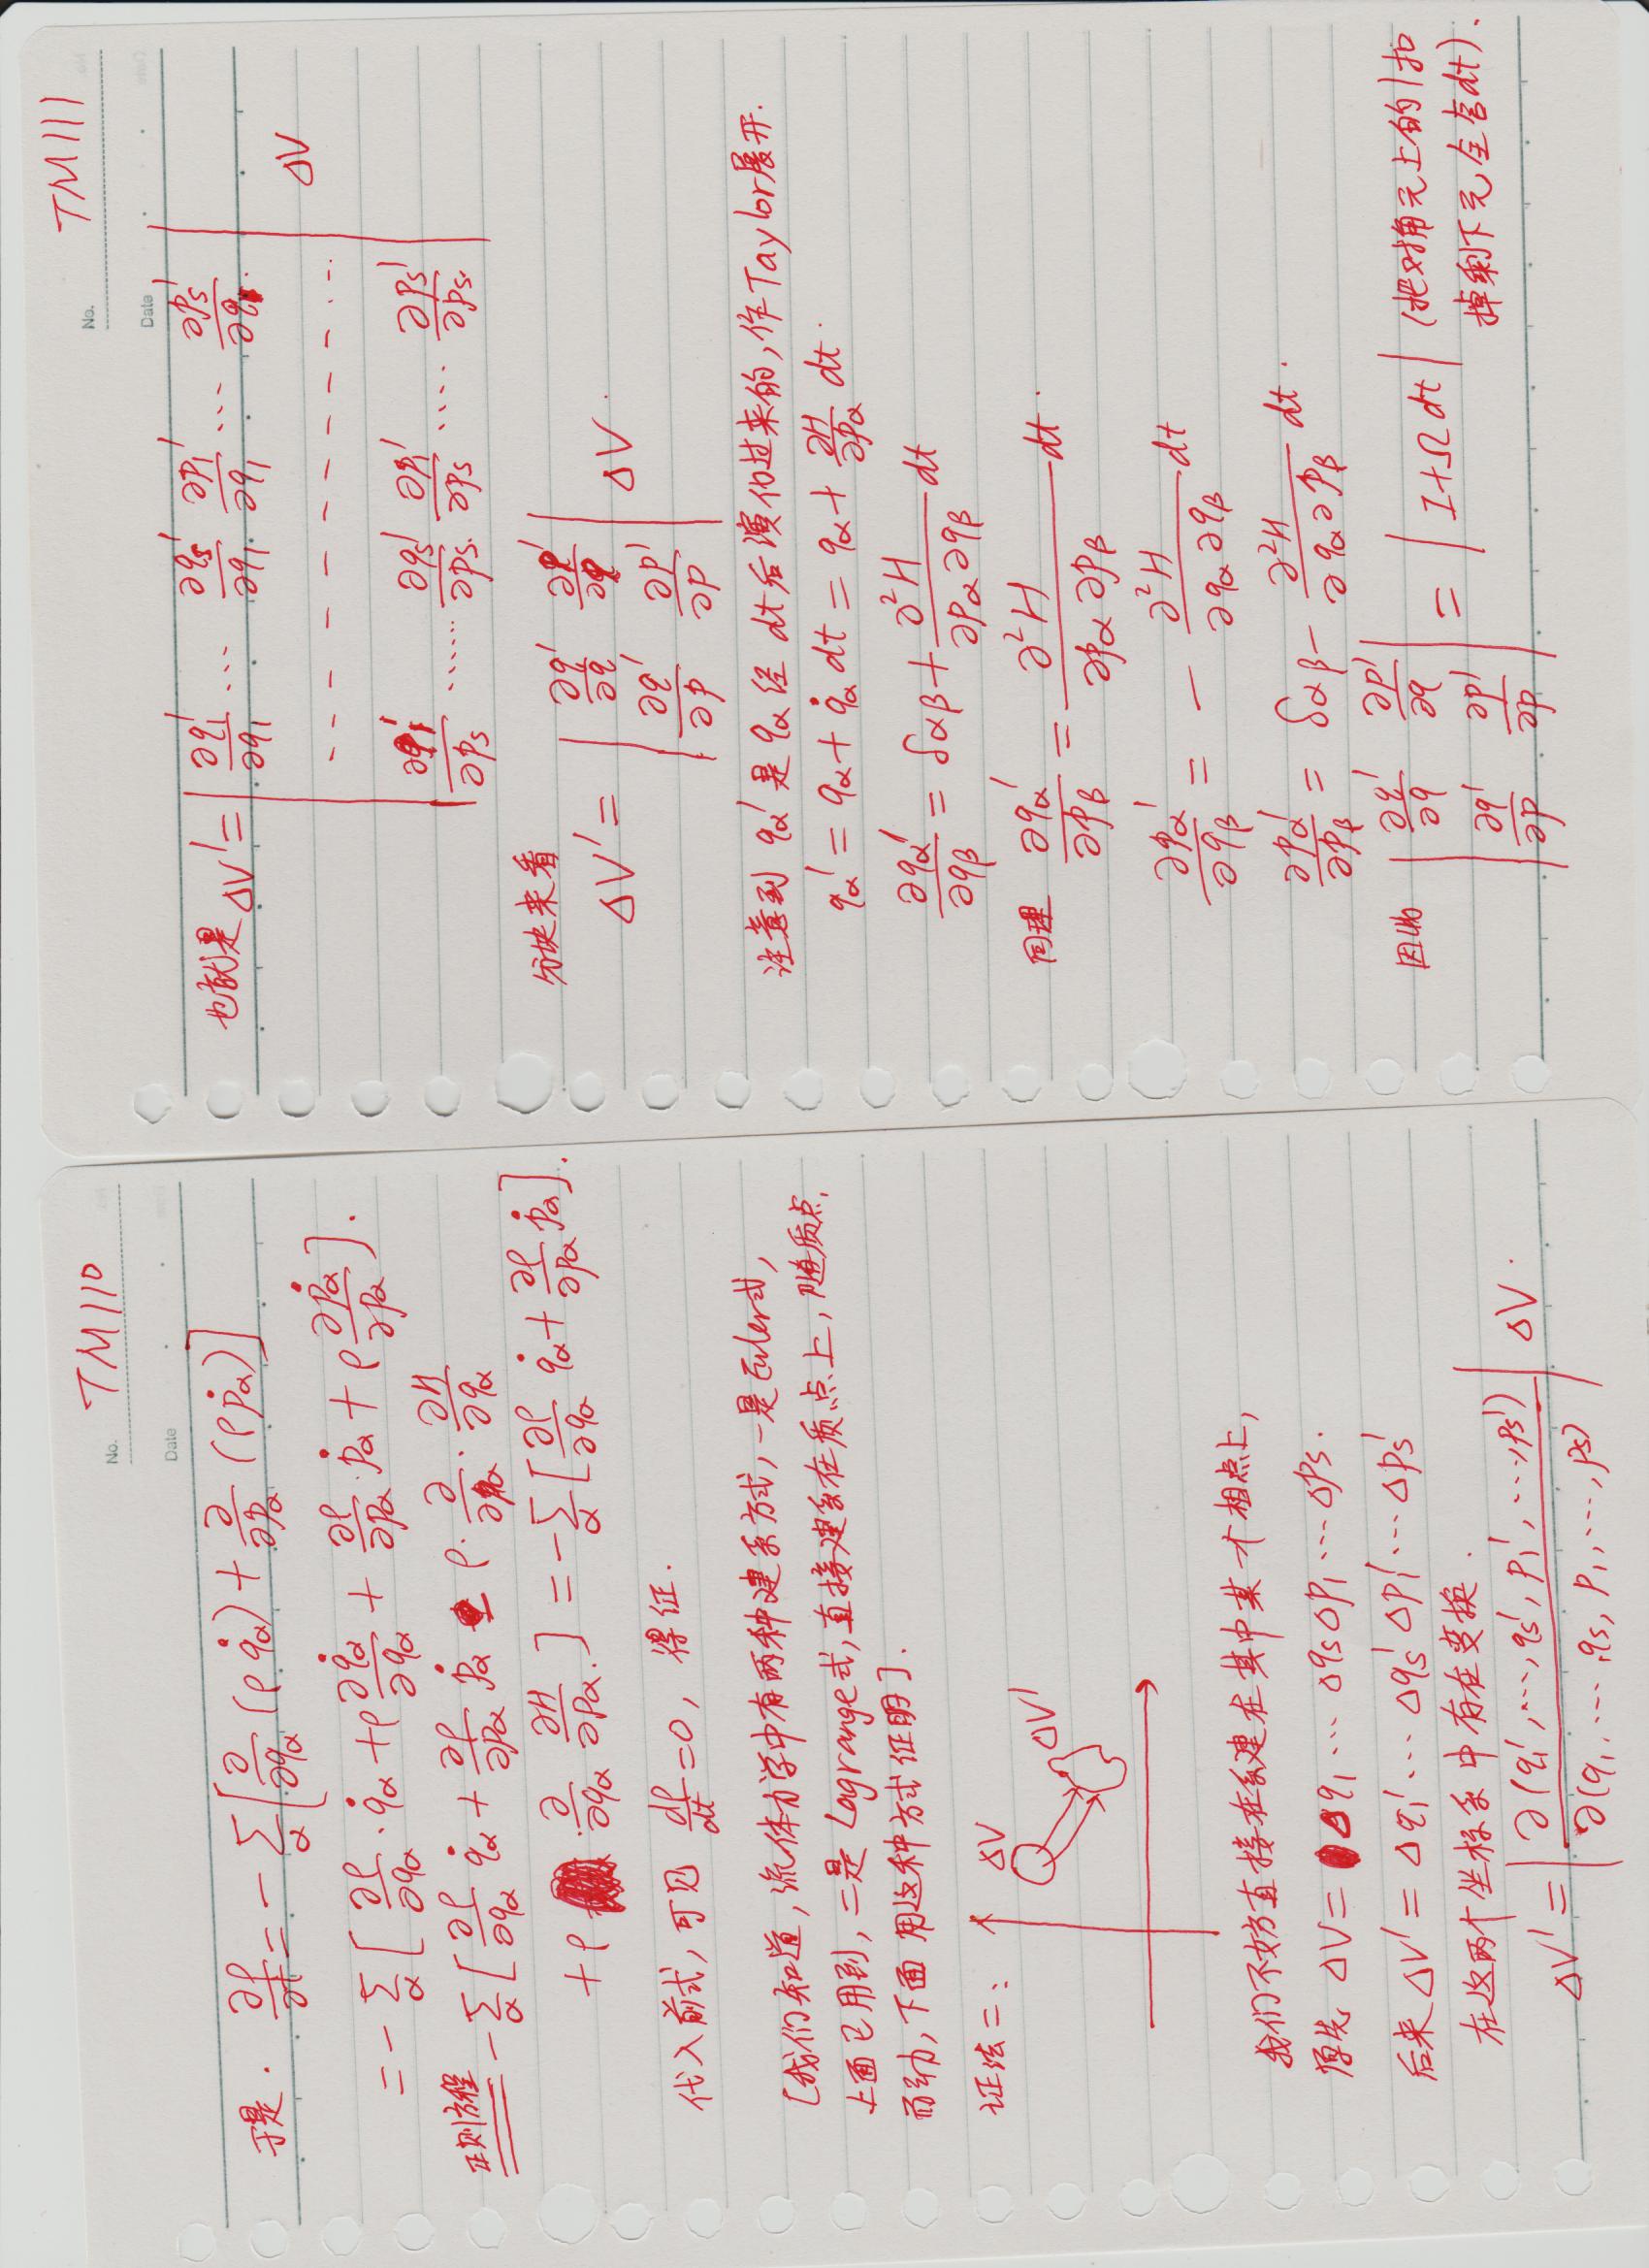 No. TM110
Date
于是. ∂ρ/∂t = - Σ_α [ ∂/∂q_α (ρ q̇_α) + ∂/∂p_α (ρ ṗ_α) ]
= - Σ_α [ ∂ρ/∂q_α · q̇_α + ρ ∂q̇_α/∂q_α + ∂ρ/∂p_α · ṗ_α + ρ ∂ṗ_α/∂p_α ].
正则方程 - Σ_α [ ∂ρ/∂q_α q̇_α + ∂ρ/∂p_α ṗ_α - ρ · ∂/∂p_α · ∂H/∂q_α
+ ρ · ∂/∂q_α ∂H/∂p_α. ] = - Σ_α [ ∂ρ/∂q_α q̇_α + ∂ρ/∂p_α ṗ_α ].
代入前式, 可见 dρ/dt = 0, 得证.
[我们知道, 流体力学中有两种建系方式, 一是Euler式,
上面已用到, 二是Lagrange式, 直接建系在质点上, 随质点
而动, 下面用这种方式证明].
证法二:
ΔV
ΔV'
我们不妨直接在系建在其中某一个相点上,
原先 ΔV = Δq_1 ··· Δq_s Δp_1 ··· Δp_s.
后来 ΔV' = Δq_1' ··· Δq_s' Δp_1' ··· Δp_s'
在这两个坐标系中存在变换.
ΔV' = | ∂(q_1', ···, q_s', p_1', ···, p_s') / ∂(q_1, ···, q_s, p_1, ···, p_s) | ΔV.
No. TM111
Date
也就是 ΔV' = | ∂q_1'/∂q_1 ··· ∂q_s'/∂q_1 ∂p_1'/∂q_1 ··· ∂p_s'/∂q_1 |
- - - - - - - - - - - - ΔV
| ∂q_1'/∂p_s ······ ∂q_s'/∂p_s ∂p_1'/∂p_s ···· ∂p_s'/∂p_s |
分块来看
ΔV' = | ∂q'/∂q ∂p'/∂q |
| ∂q'/∂p ∂p'/∂p | ΔV.
注意到 q_α' 是 q_α 经 dt 后演化过来的, 作Taylor展开.
q_α' = q_α + q̇_α dt = q_α + ∂H/∂p_α dt.
∂q_α'/∂q_β = δ_αβ + ∂²H/∂p_α∂q_β dt
同理 ∂q_α'/∂p_β = ∂²H/∂p_α∂p_β dt.
∂p_α'/∂q_β = - ∂²H/∂q_α∂q_β dt
∂p_α'/∂p_β = δ_αβ - ∂²H/∂q_α∂p_β dt.
因此 | ∂q'/∂q ∂p'/∂q |
| ∂q'/∂p ∂p'/∂p | = | I + Ω dt | (把对角元上的1扣
掉剩下元全含dt).